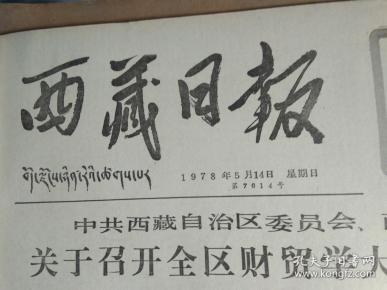 西藏日報
1978年5月14日 星期日
第7014号
中共西藏自治区委员会、
关于召开全区财贸学大
孔夫子旧书网